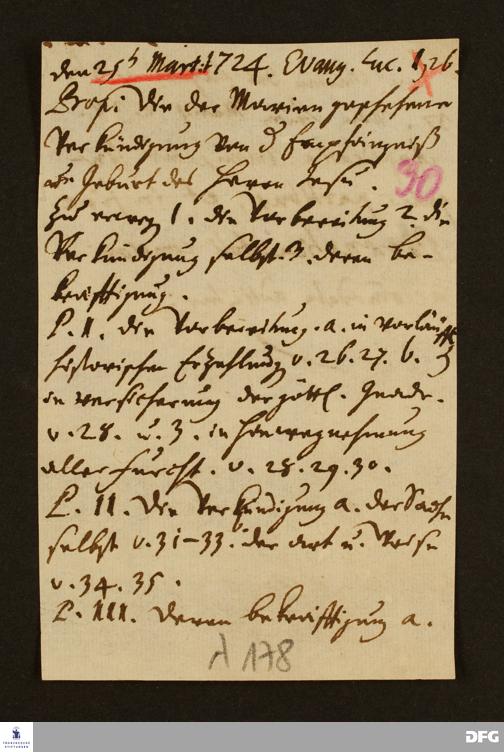 den 25t Martii 1724. Evang. Luc. 1, 26.
Prop: Die der Marien geschehene
Verkündigung von d. Empfängniß
und Geburt des Herrn Jesu.
30
Zu erweg 1. die Vorbereitung 2. die
Verkündigung selbst. 3. deren be-
kräfftigung.
P. I. die Vorbereitung. a. in vorläuff
historischer Erzehlung v. 26. 27. b.
in versicherung der göttl. Gnade.
v. 28. u. 3. in hinwegnehmung
aller furcht. v. 28. 29. 30.
P. II. Die Verkündigung a. der Sache
selbst v. 31-33. der art u. Weise
v. 34. 35.
P. III. deren bekräfftigung a.
A 178
FRANCKESCHE STIFTUNGEN
DFG